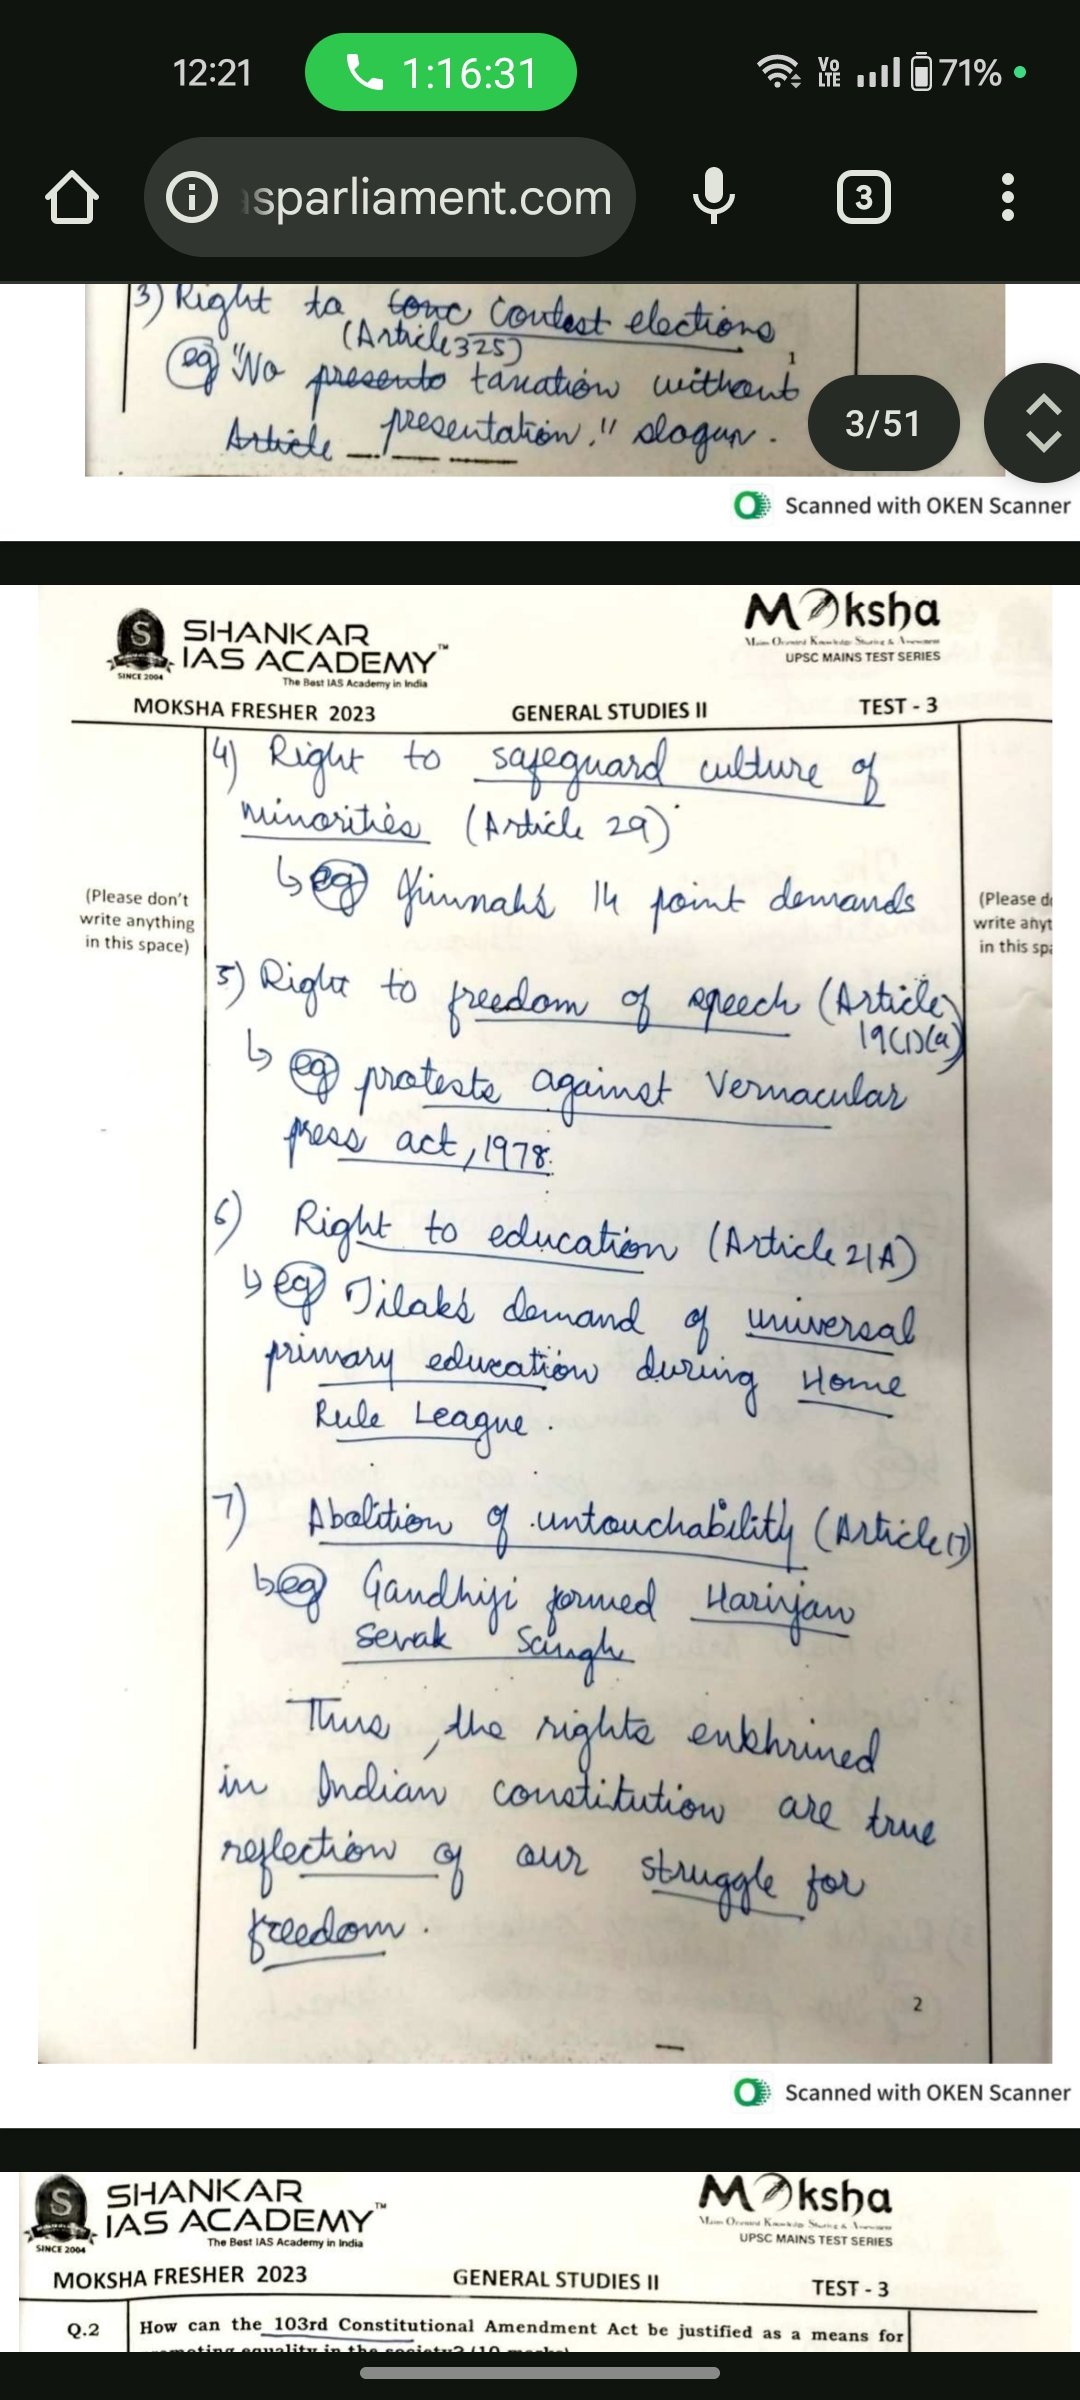 12:21
1:16:31
Vo
LTE
71%
sparliament.com
3
3) Right to conc Contest elections
(Article 325)
1
eg "No presento taxation without
Article presentation." slogan.
3/51
Scanned with OKEN Scanner
S
SINCE 2004
SHANKAR
IAS ACADEMY™
The Best IAS Academy in India
Moksha
UPSC MAINS TEST SERIES
MOKSHA FRESHER 2023
GENERAL STUDIES II
TEST - 3
4) Right to safeguard culture of
minorities (Article 29)
↳ eg Jinnah's 14 point demands
(Please don't
write anything
in this space)
(Please d
write anyt
in this spa
5) Right to freedom of speech (Article
19(1)(a)
↳ eg protests against Vernacular
press act, 1978.
6) Right to education (Article 21A)
↳ eg Tilak's demand of universal
primary education during Home
Rule League.
7) Abolition of untouchability (Article 17)
↳ eg Gandhiji formed Harinjan
Sevak Sangh
Thus, the rights enkhrined
in Indian constitution are true
reflection of our struggle for
freedom.
2
Scanned with OKEN Scanner
S
SINCE 2004
SHANKAR
IAS ACADEMY™
The Best IAS Academy in India
Moksha
UPSC MAINS TEST SERIES
MOKSHA FRESHER 2023
GENERAL STUDIES II
TEST - 3
Q.2
How can the 103rd Constitutional Amendment Act be justified as a means for